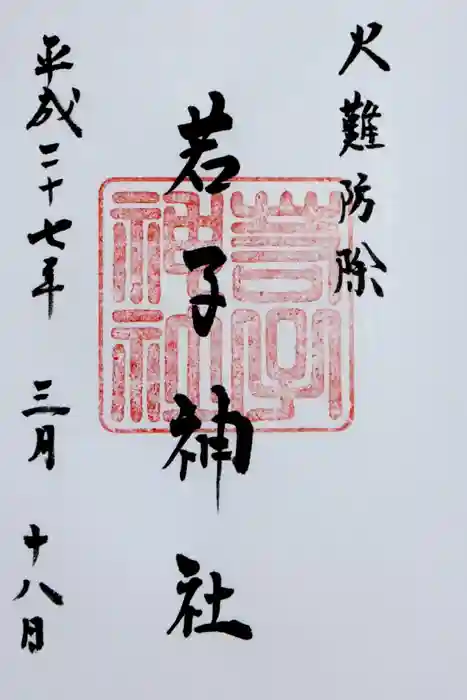 火難防除
若子神社
若子神社
平成二十七年 三月 十八日